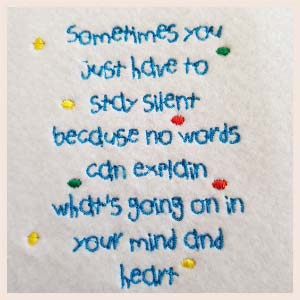 sometimes you
just have to
stay silent
because no words
can explain
what's going on in
your mind and
heart